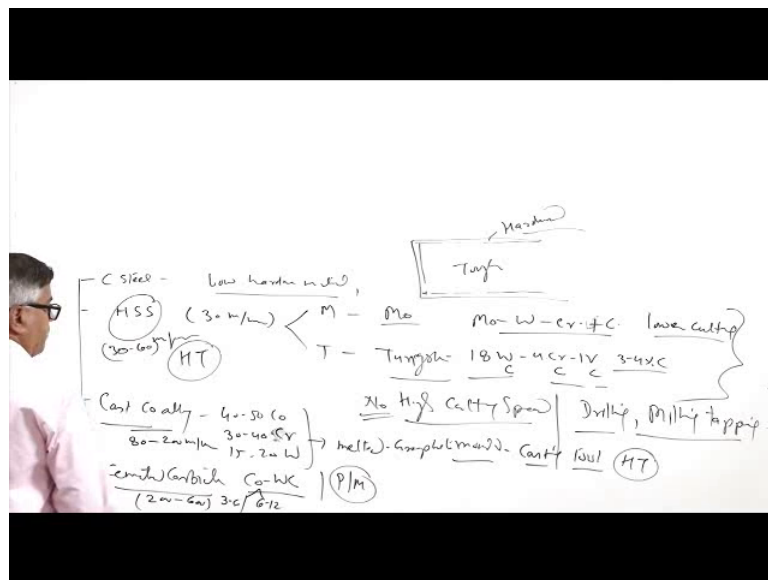 Harden
Tough
C Steel - Low harden
HSS (30 m/m) M - Mo Mo-W-Cr-V-C. lower cutting
(30-60) m/m HT T - Tungsten 18W-4Cr-1V 3-4%C
C C C
Cast Co alloy - 40-50 Co No High Cutting Speed Drilling, Milling tapping
80-200 m/m 30-40 Cr
15-20 W → melted - Graphite (mould) - Casting tool HT
Co-WC P/M
(200-600) 3-6 6-12